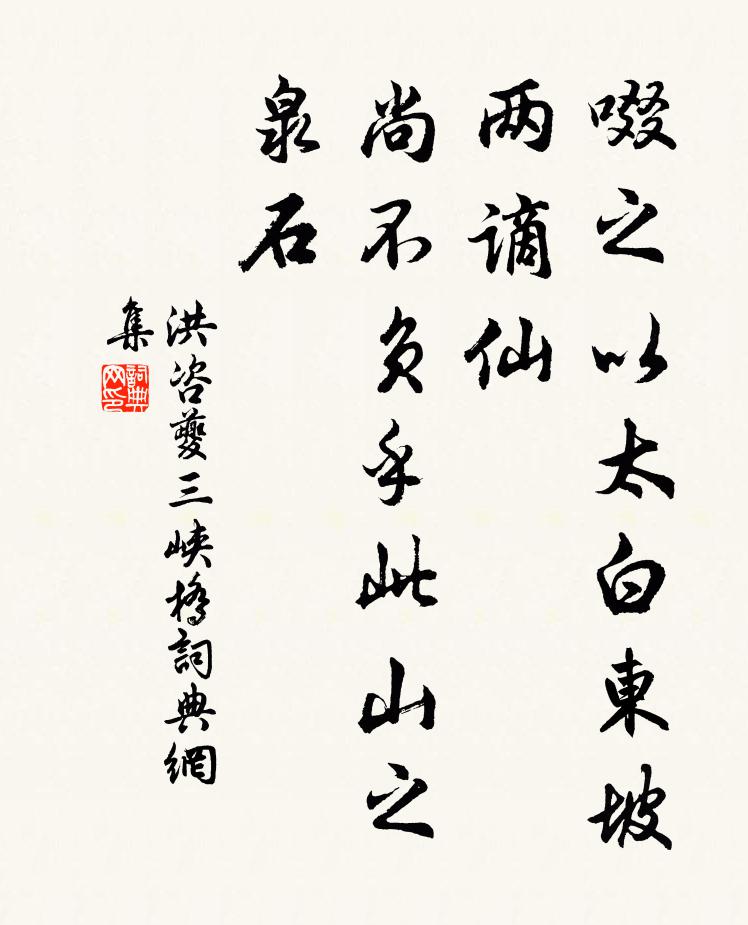 啜之以太白東坡
两謫仙
尚不负乎此山之
泉石
洪咨夔三峽橋詞典網
集
詞典
网印